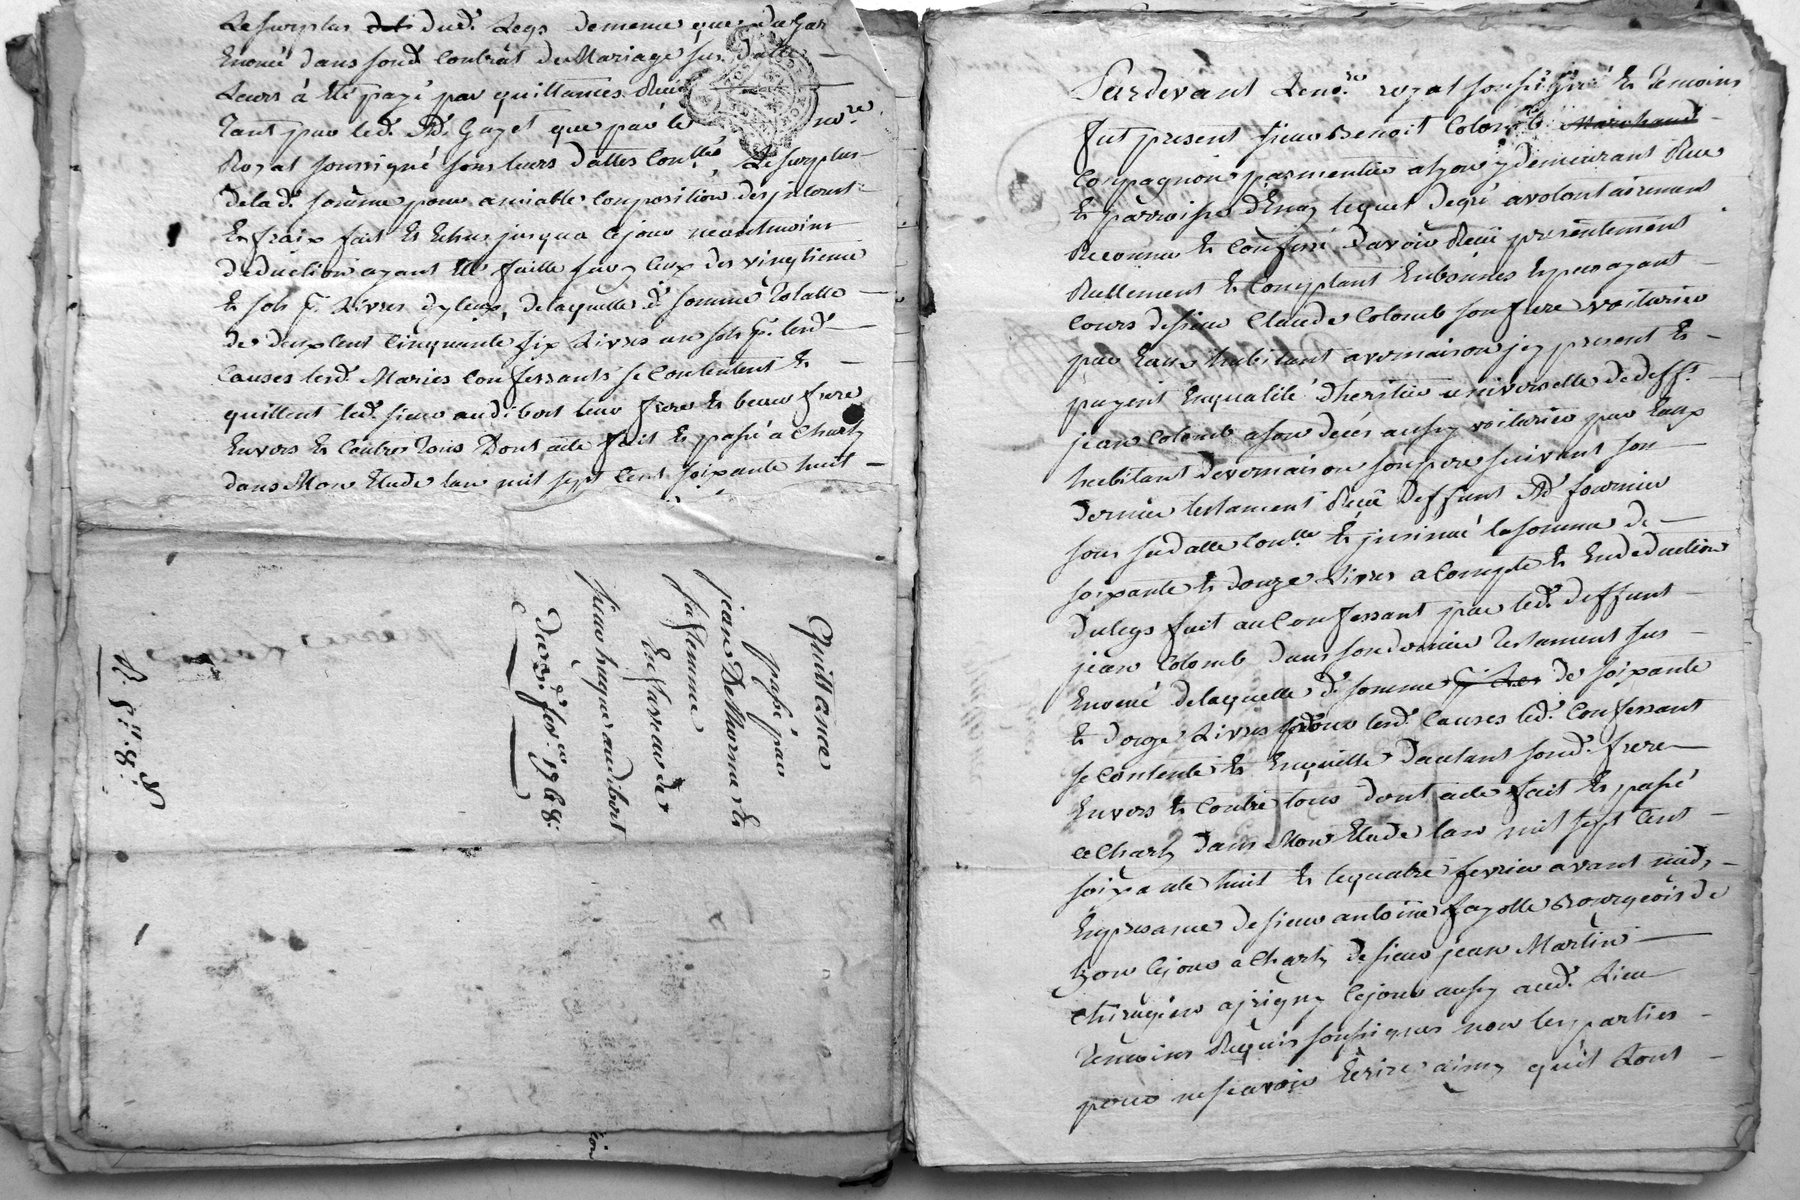 Le surplus dud. Legs de meme que
Enoncé dans sond. Contrat de Mariage sus datté
Leurs à été payé par quittances Reçue
Tant par led. Me. Gayet que par le no.re
Royal soussigné sous leurs dattes Conllées Le surplus
de lad. somme pour amiable Composition des jnterest
Et fraix fait Et Echus jusqua Cejour neantmoins
deduction ayant été faitte sur y Ceux des vingtieme
Et sols p. Livres dyceux, de laquelle d. somme Totalle
de deux Cent Cinquante six Livres un sols p. lesd.
Causes lesd. Mariés Confessants se Contentent Et
quittent led. sieur audibert leur frere Et beau frere
Envers Et Contre Tous Dont acte fait Et passé a Charly
dans Mon Etude L'an mil sept Cent soixante huit
Quittance
passé par
jean De Mornex Et
sa femme
En faveur de
sieur hugue audibert
Du 2e. fev.er 1768.
Pardevant Le no.re royal soussigné Et Temoins
fut present sieur Benoit Colomb Marchand
Compagnon passmentier a Lyon y demeurant Rue
Et parroisse d'Enay lequel De gré a volontairement
Reconnu Et Confessé D'avoir Reçu presentement
Reellement Et Comptant En bonnes Especes ayant
Cours de sieur Claude Colomb son frere voiturier
par Eaux habitant a vernaison jcy present Et
payent En qualité D'heritier universelle de deff.
jean Colomb a son décés aussy voiturier par Eaux
habitant de vernaison son pere suivant son
dernier testament Reçu Deffunt Me. fournier
sous sa datte Conllé Et jnsinué la somme de
soixante Et douze Livres a Compte Et En deduction
du legs fait au Confessant par led. deffunt
jean Colomb dans son dernier Testament sus
Enoncé de laquelle d. somme de soixante
Et douze Livres pour lesd. Causes led. Confessant
se Contente Et En quitte D'autant sond. frere
Envers Et Contre tous dont acte fait Et passé
a Charly Dans Mon Etude L'an mil sept Cent
soixante huit Et le quatre fevrier avant midy
En presance de sieur antoine fayolle Bourgeois de
Lyon Cejour a Charly de sieur jean Martin
Chirugien a jrigny Cejour aussy aud. Lieu
Temoins Requis soussignes non les parties
pour ne sçavoir Ecrire ainsy qu'il L'ont